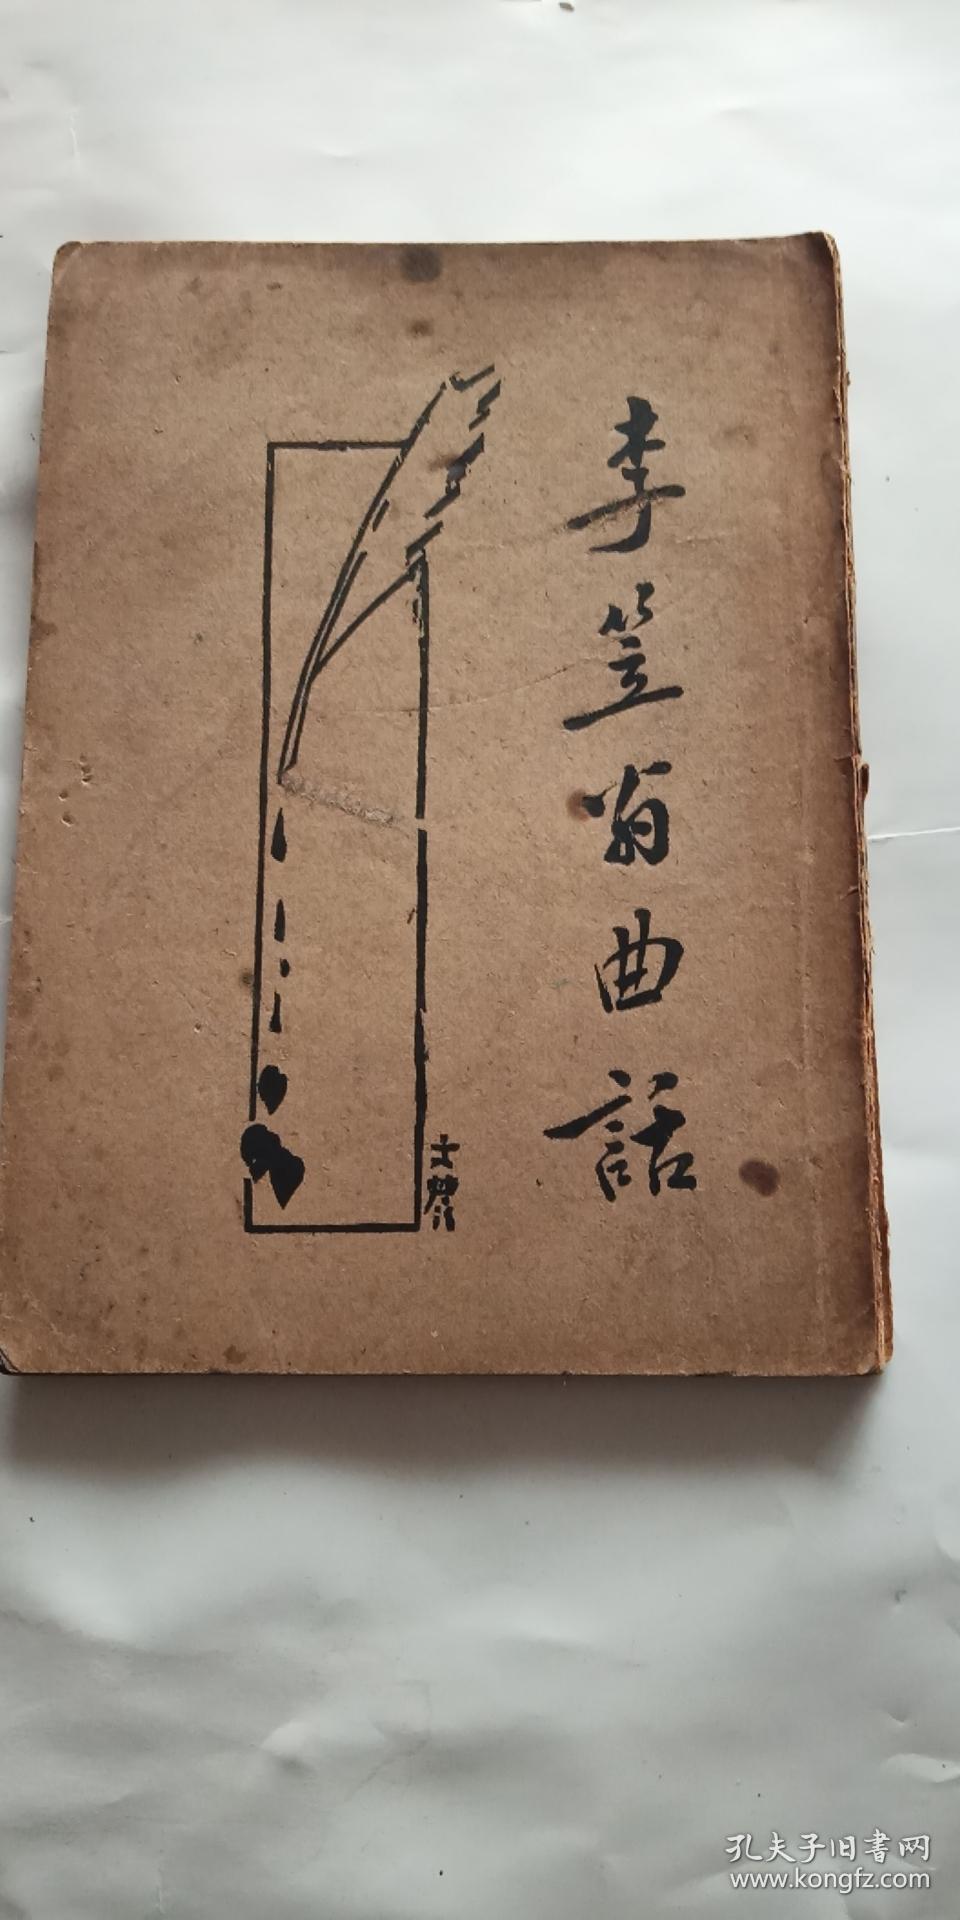 李笠翁曲話
文農
孔夫子旧書网
www.kongfz.com